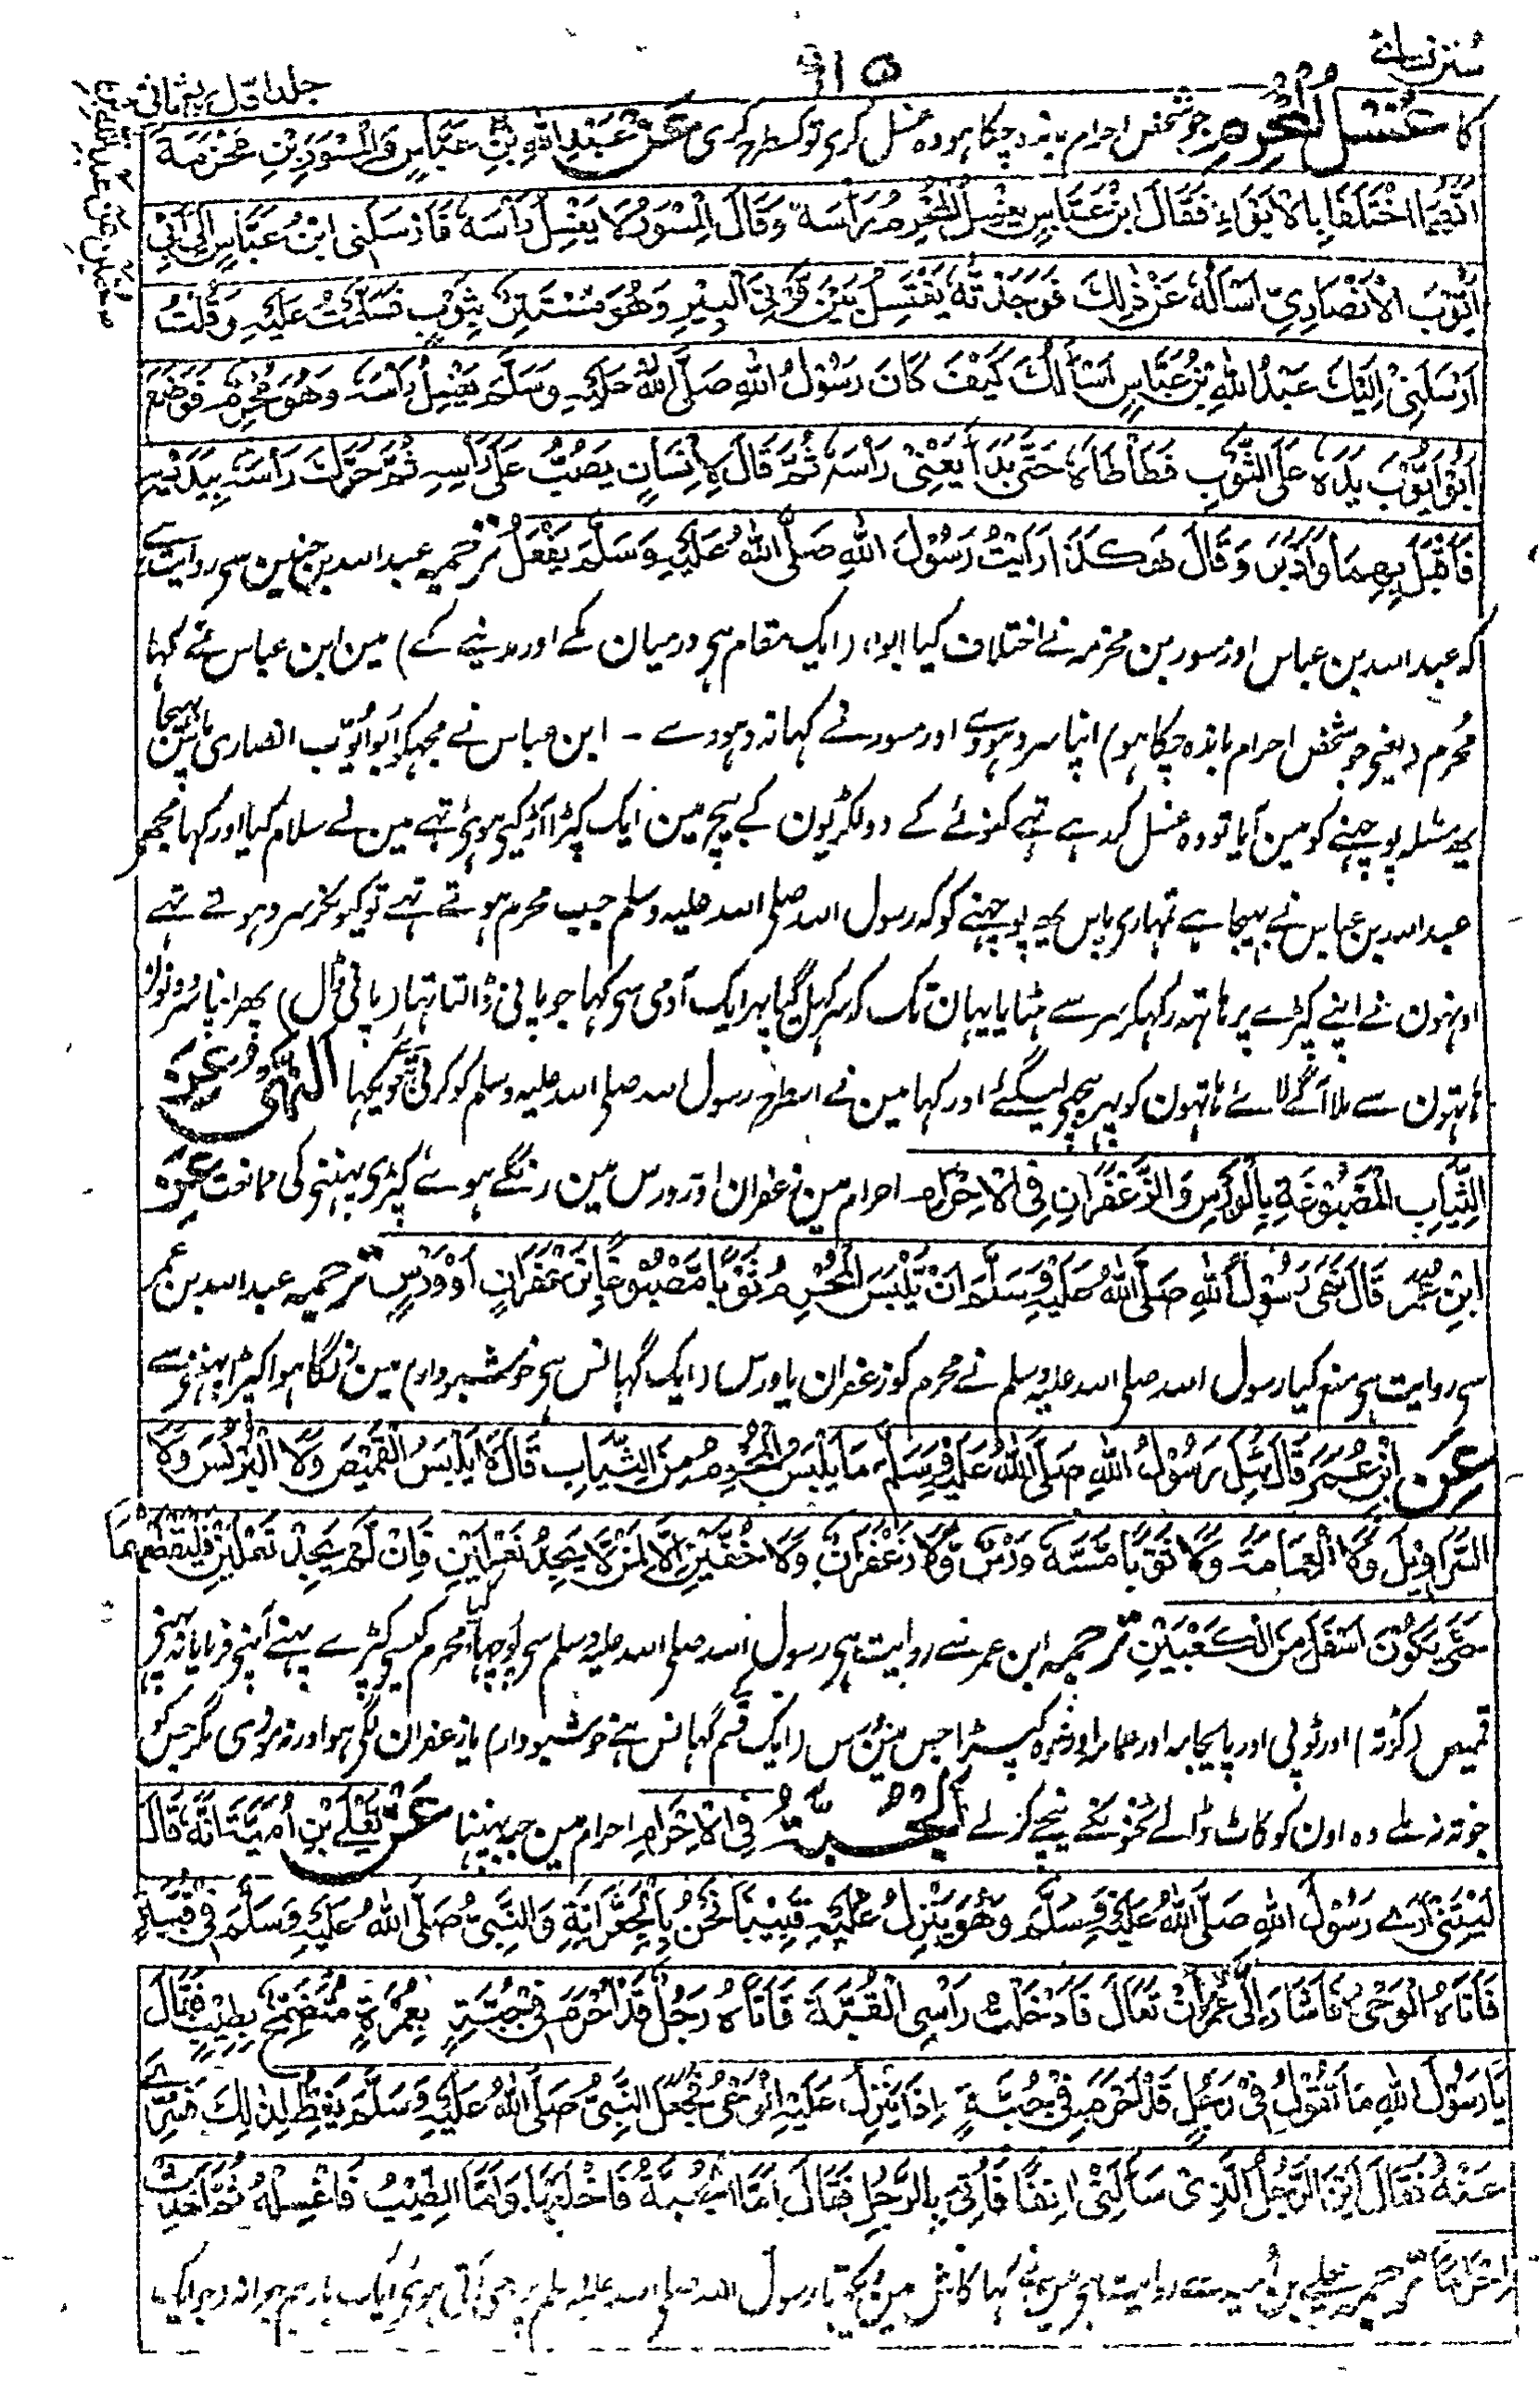 سنن نسائے
910
جلد اوّل
کا غُسْلُ الْمُحْرِمِ جو شخص احرام باندہ چکا ہو وہ غسل کری تو کسطرح کری عَنْ عَبْدِ اللّٰهِ بْنِ عَبَّاسٍ وَالْمِسْوَرِ بْنِ مَخْرَمَةَ
اَنَّهُمَا اخْتَلَفَا بِالْاَبْوَاءِ فَقَالَ ابْنُ عَبَّاسٍ يَغْسِلُ الْمُحْرِمُ رَأْسَهٗ وَقَالَ الْمِسْوَرُ لَا يَغْسِلُ رَأْسَهٗ فَاَرْسَلَنِی ابْنُ عَبَّاسٍ اِلٰی اَبِیْ
اَيُّوْبَ الْاَنْصَارِیِّ اَسْاَلُهٗ عَنْ ذٰلِكَ فَوَجَدْتُّهٗ يَغْتَسِلُ بَيْنَ قَرْنَیِ الْبِيْرِ وَهُوَ مُسْتَتِرٌ بِثَوْبٍ فَسَلَّمْتُ عَلَيْهِ وَقُلْتُ
اَرْسَلَنِیْ اِلَيْكَ عَبْدُ اللّٰهِ بْنُ عَبَّاسٍ اَسْاَلُكَ كَيْفَ كَانَ رَسُوْلُ اللّٰهِ صَلَّی اللّٰهُ عَلَيْهِ وَسَلَّمَ يَغْسِلُ رَأْسَهٗ وَهُوَ مُحْرِمٌ فَوَضَعَ
اَبُوْ اَيُّوْبَ يَدَهٗ عَلَی الثَّوْبِ فَطَأْطَاَهٗ حَتّٰی بَدَا يَعْنِیْ رَأْسَهٗ ثُمَّ قَالَ لِاِنْسَانٍ يَصُبُّ عَلٰی رَأْسِهٖ ثُمَّ حَرَّكَ رَأْسَهٗ بِيَدَيْهِ
فَاَقْبَلَ بِهِمَا وَاَدْبَرَ وَقَالَ هٰكَذَا رَاَيْتُ رَسُوْلَ اللّٰهِ صَلَّی اللّٰهُ عَلَيْهِ وَسَلَّمَ يَفْعَلُ ترجمہ عبداللہ بن حنین سی روایت ہے
کہ عبداللہ بن عباس اور مسور بن مخرمہ نے اختلاف کیا ابواء (ایک مقام ہی درمیان مکے اور مدینے کے) مین ابن عباس نے کہا
محُرم (یعنی جو شخص احرام باندہ چکا ہو) اپنا سر دہووے اور مسور نے کہا نہ دہووے - ابن عباس نے مجہکو ابو ایّوب انصاری پاس بہیجا
یہہ مسئلہ پوچہنے کو مین آیا تو وہ غسل کر رہے تہے کنوئے کے دو لکڑیون کے بیچ مین ایک کپڑا آڑ کئی ہوئی تہے مین نے سلام کیا اور کہا مجہے
عبداللہ بن عباس نے بہیجا ہے تمہاری پاس یہ پوچہنے کو کہ رسول اللہ صلی اللہ علیہ وسلم جب محرم ہوتے تہے تو کیونکر سر دہوتے تہے
اونہون نے اپنے کپڑے پر ہاتہہ رکہکر سر سے ہٹایا یہان تک کہ سر کہل گیا پہر ایک آدمی سی کہا جو پانی ڈالتا تہا (پانی ڈال) پہر اپنا سر دونون
ہاتہون سے ملا آگے لائے ہاتہون کو پہر پیچہی لیگئے اور کہا مین نے اسطرح رسول اللہ صلی اللہ علیہ وسلم کو کرتی دیکہا اَلنَّهْیُ عَنِ
الثِّيَابِ الْمَصْبُوْغَةِ بِالْوَرْسِ وَالزَّعْفَرَانِ فِی الْاِحْرَامِ احرام مین زعفران اور ورس مین رنگے ہوئے کپڑی پہننی کی ممانعت عَنِ
ابْنِ عُمَرَ قَالَ نَهٰی رَسُوْلُ اللّٰهِ صَلَّی اللّٰهُ عَلَيْهِ وَسَلَّمَ اَنْ يَّلْبَسَ الْمُحْرِمُ ثَوْبًا مَّصْبُوْغًا بِزَعْفَرَانٍ اَوْ وَرْسٍ ترجمہ عبداللہ بن عمر
سی روایت ہی منع کیا رسول اللہ صلی اللہ علیہ وسلم نے محرم کو زعفران یا ورس (ایک گہانس ہی خوشبودار) مین رنگا ہوا کپڑا پہننے سے
عَنِ ابْنِ عُمَرَ قَالَ سُئِلَ رَسُوْلُ اللّٰهِ صَلَّی اللّٰهُ عَلَيْهِ وَسَلَّمَ مَا يَلْبَسُ الْمُحْرِمُ مِنَ الثِّيَابِ قَالَ لَا يَلْبَسُ الْقَمِيْصَ وَلَا الْبُرْنُسَ وَلَا
السَّرَاوِيْلَ وَلَا الْعِمَامَةَ وَلَا ثَوْبًا مَسَّهٗ وَرْسٌ وَلَا زَعْفَرَانٌ وَلَا خُفَّيْنِ اِلَّا لِمَنْ لَّا يَجِدُ نَعْلَيْنِ فَاِنْ لَّمْ يَجِدْ نَعْلَيْنِ فَلْيَقْطَعْهُمَا
حَتّٰی يَكُوْنَ اَسْفَلَ مِنَ الْكَعْبَيْنِ ترجمہ ابن عمر سے روایت ہی رسول اللہ صلی اللہ علیہ وسلم سی پوچہا گیا محرم کیسی کپڑے پہنے آپنی فرمایا نہ پہنی
قمیص (کُرتہ) اور ٹوپی اور پایجامہ اور عمامہ اور نہ وہ کپڑا جس مین ورس (ایک قسم گہانس ہے خوشبودار) یا زعفران لگی ہو اور نہ موزی مگر جس کو
جوتہ نہ ملے وہ اون کو کاٹ ڈالے ٹخنونکے نیچے کرلے اَلْجُبَّةُ فِی الْاِحْرَامِ احرام مین جبہ پہننا عَنْ يَعْلَی بْنِ اُمَيَّةَ اَنَّهٗ قَالَ
لَيْتَنِیْ اَرٰی رَسُوْلَ اللّٰهِ صَلَّی اللّٰهُ عَلَيْهِ وَسَلَّمَ وَهُوَ يُنْزَلُ عَلَيْهِ فَبَيْنَا نَحْنُ بِالْجِعْرَانَةِ وَالنَّبِیُّ صَلَّی اللّٰهُ عَلَيْهِ وَسَلَّمَ فِیْ قُبَّةٍ
فَاَتَاهُ الْوَحْیُ فَاَشَارَ اِلَیَّ عُمَرُ اَنْ تَعَالَ فَاَدْخَلْتُ رَاْسِی الْقُبَّةَ فَاَتَاهُ رَجُلٌ قَدْ اَحْرَمَ فِیْ جُبَّةٍ بِعُمْرَةٍ مُتَضَمِّخٌ بِطِيْبٍ فَقَالَ
يَا رَسُوْلَ اللّٰهِ مَا تَقُوْلُ فِیْ رَجُلٍ قَدْ اَحْرَمَ فِیْ جُبَّةٍ اِذْ اُنْزِلَ عَلَيْهِ الْوَحْیُ فَجَعَلَ النَّبِیُّ صَلَّی اللّٰهُ عَلَيْهِ وَسَلَّمَ يَغِطُّ لِذٰلِكَ فَسُرِّیَ
عَنْهُ فَقَالَ اَيْنَ الرَّجُلُ الَّذِیْ سَاَلَنِیْ اٰنِفًا فَاُتِیَ بِالرَّجُلِ فَقَالَ اَمَّا الْجُبَّةُ فَاخْلَعْهَا وَاَمَّا الطِّيْبُ فَاغْسِلْهُ ثُمَّ اَحْدِثْ
اِحْرَامًا ترجمہ یعلی بن اُمیہ سے روایت ہی کہا کاش مین دیکہتا رسول اللہ صلی اللہ علیہ وسلم پر وحی آتی ہوئی ایک بار ہم جعرانہ